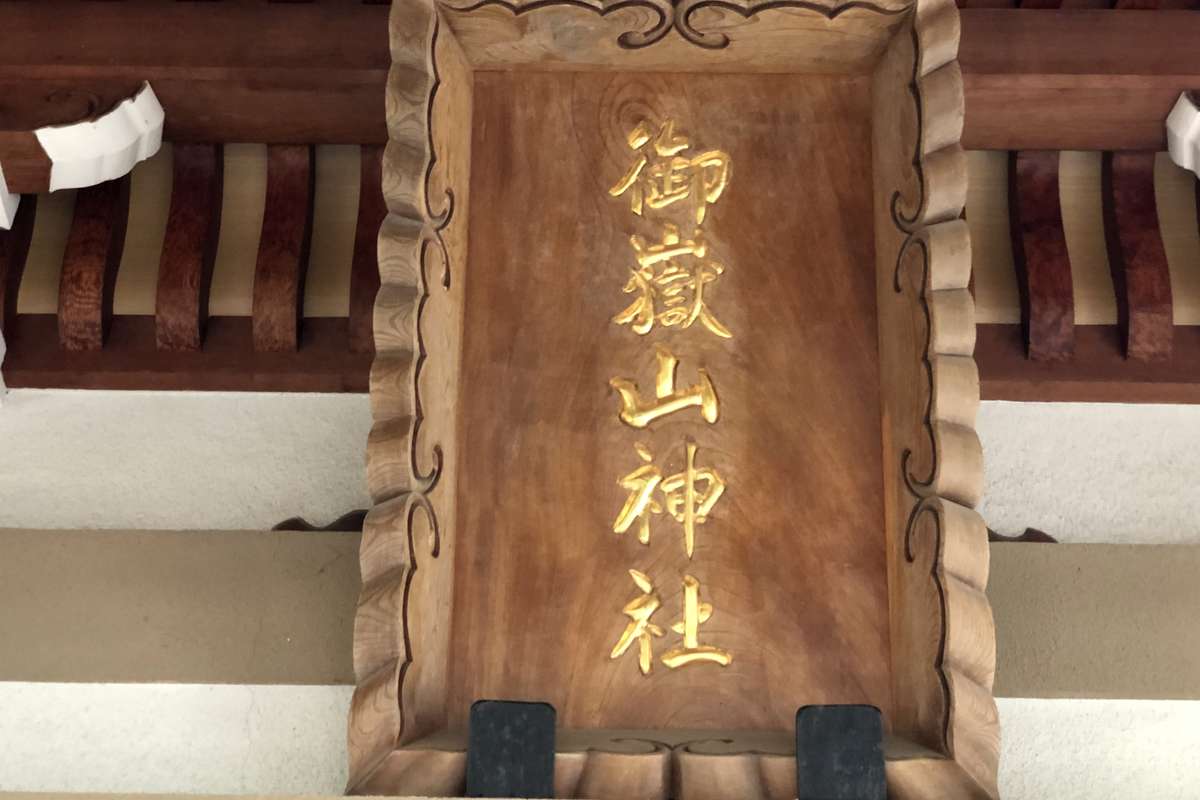 御嶽山神社